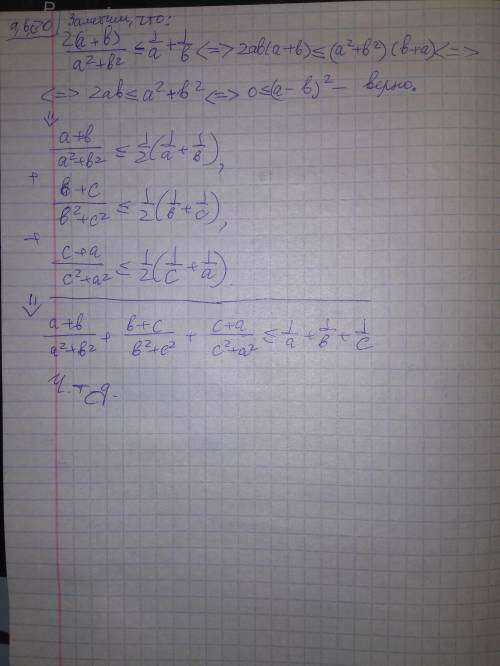 a,b,c>0 Заметим, что:
2(a+b)/(a²+b²) ≤ 1/a + 1/b <=> 2ab(a+b) ≤ (a²+b²)(b+a) <=>
<=> 2ab ≤ a²+b² <=> 0 ≤ (a-b)² — верно.
⇓
(a+b)/(a²+b²) ≤ 1/2(1/a + 1/b),
+
(b+c)/(b²+c²) ≤ 1/2(1/b + 1/c),
+
(c+a)/(c²+a²) ≤ 1/2(1/c + 1/a)
⇓
(a+b)/(a²+b²) + (b+c)/(b²+c²) + (c+a)/(c²+a²) ≤ 1/a + 1/b + 1/c
Ч.т.д.